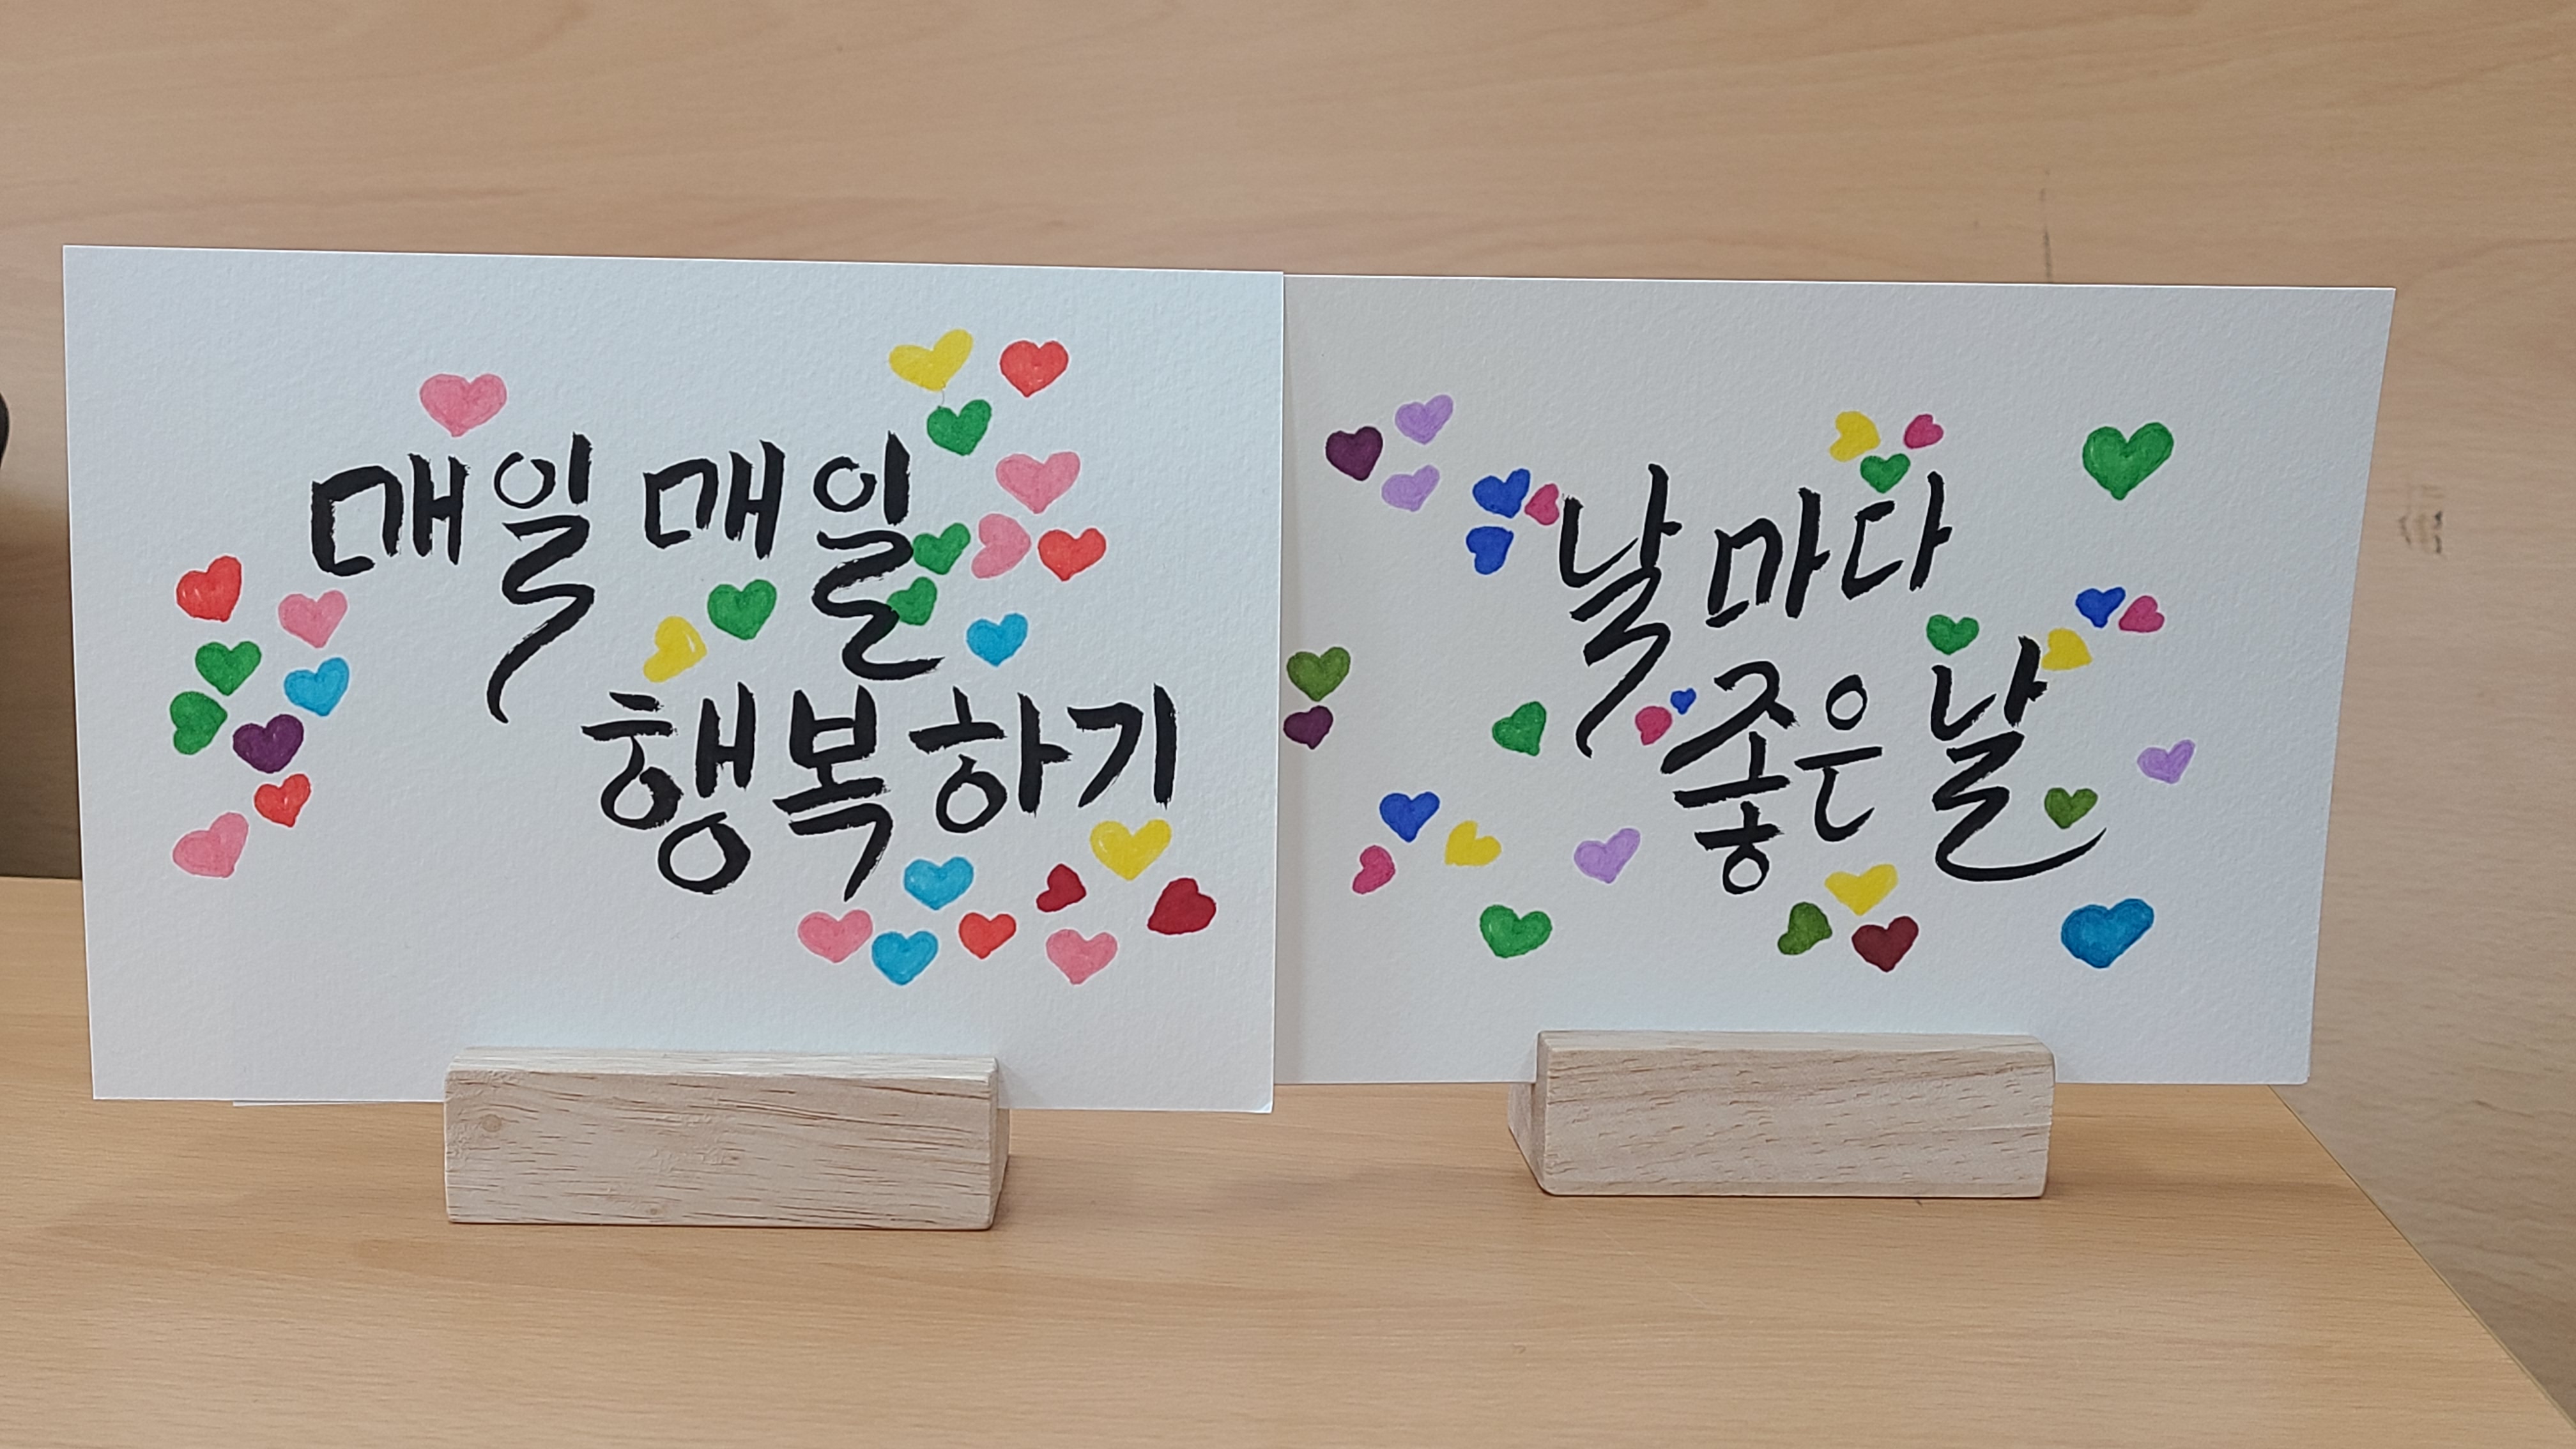 매일 매일
행복하기
날마다
좋은 날